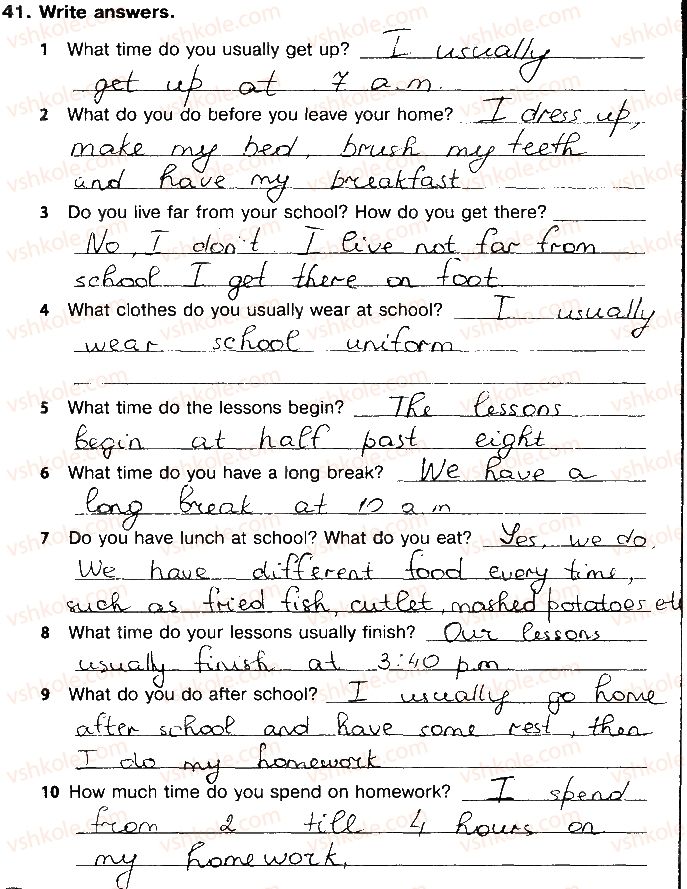 41. Write answers.
1 What time do you usually get up? I usually
get up at 7 a.m.
2 What do you do before you leave your home? I dress up,
make my bed, brush my teeth
and have my breakfast
3 Do you live far from your school? How do you get there?
No, I don't I live not far from
school I get there on foot
4 What clothes do you usually wear at school? I usually
wear school uniform
5 What time do the lessons begin? The lessons
begin at half past eight
6 What time do you have a long break? We have a
long break at 10 a.m
7 Do you have lunch at school? What do you eat? Yes, we do.
We have different food every time,
such as fried fish, cutlet, mashed potatoes etc
8 What time do your lessons usually finish? Our lessons
usually finish at 3:40 p.m
9 What do you do after school? I usually go home
after school and have some rest, then
I do my homework
10 How much time do you spend on homework? I spend
from 2 till 4 hours on
my homework.
vshkole.com